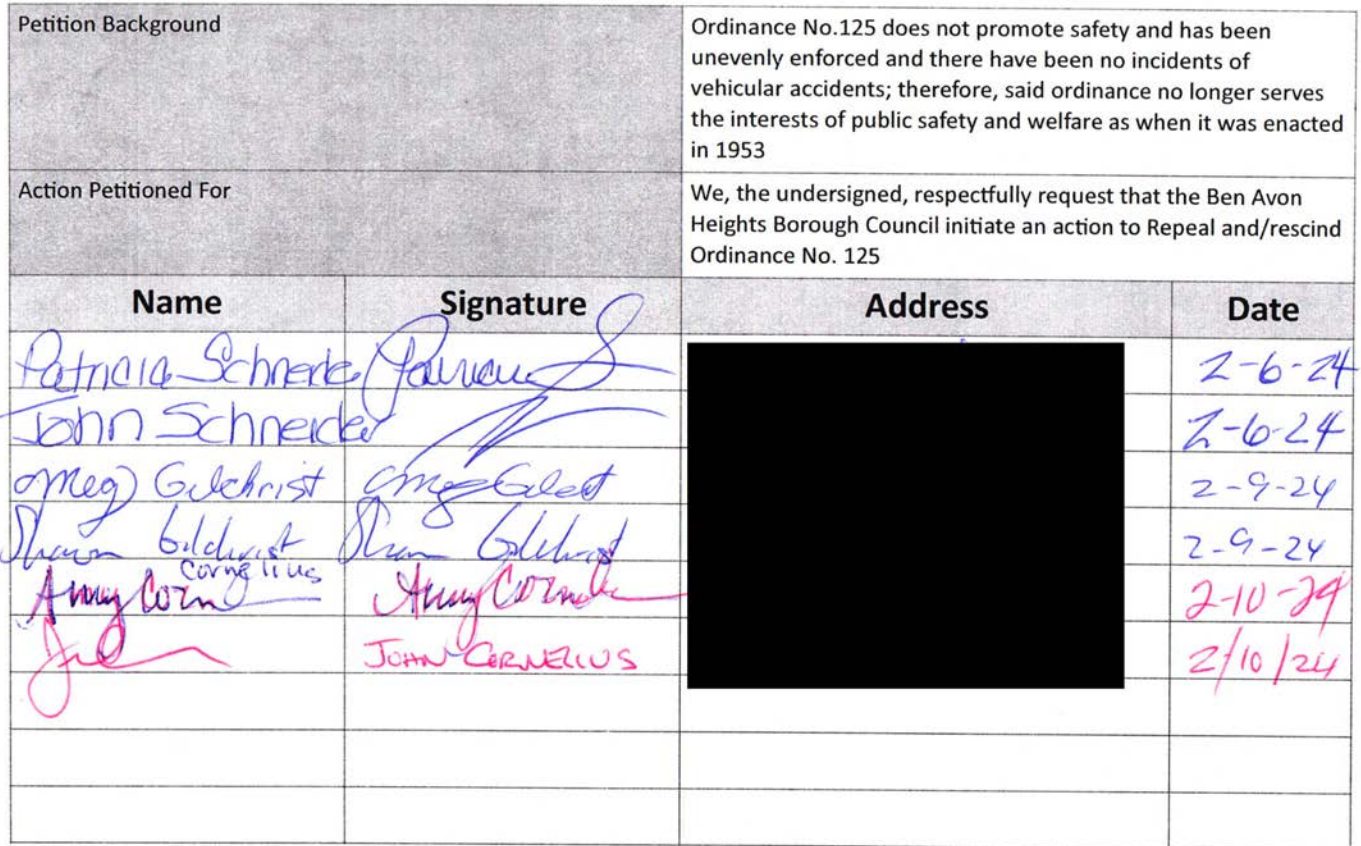 Petition Background
Ordinance No.125 does not promote safety and has been
unevenly enforced and there have been no incidents of
vehicular accidents; therefore, said ordinance no longer serves
the interests of public safety and welfare as when it was enacted
in 1953
Action Petitioned For
We, the undersigned, respectfully request that the Ben Avon
Heights Borough Council initiate an action to Repeal and/rescind
Ordinance No. 125
Name Signature Address Date
Patricia Schneider 2-6-24
John Schneider 2-6-24
Meg Gilchrist 2-9-24
Sharon Gilchrist Gilchrist 2-9-24
Cornelius
Amy Corn Amy 2-10-24
JOHN CORNELIUS 2/10/24